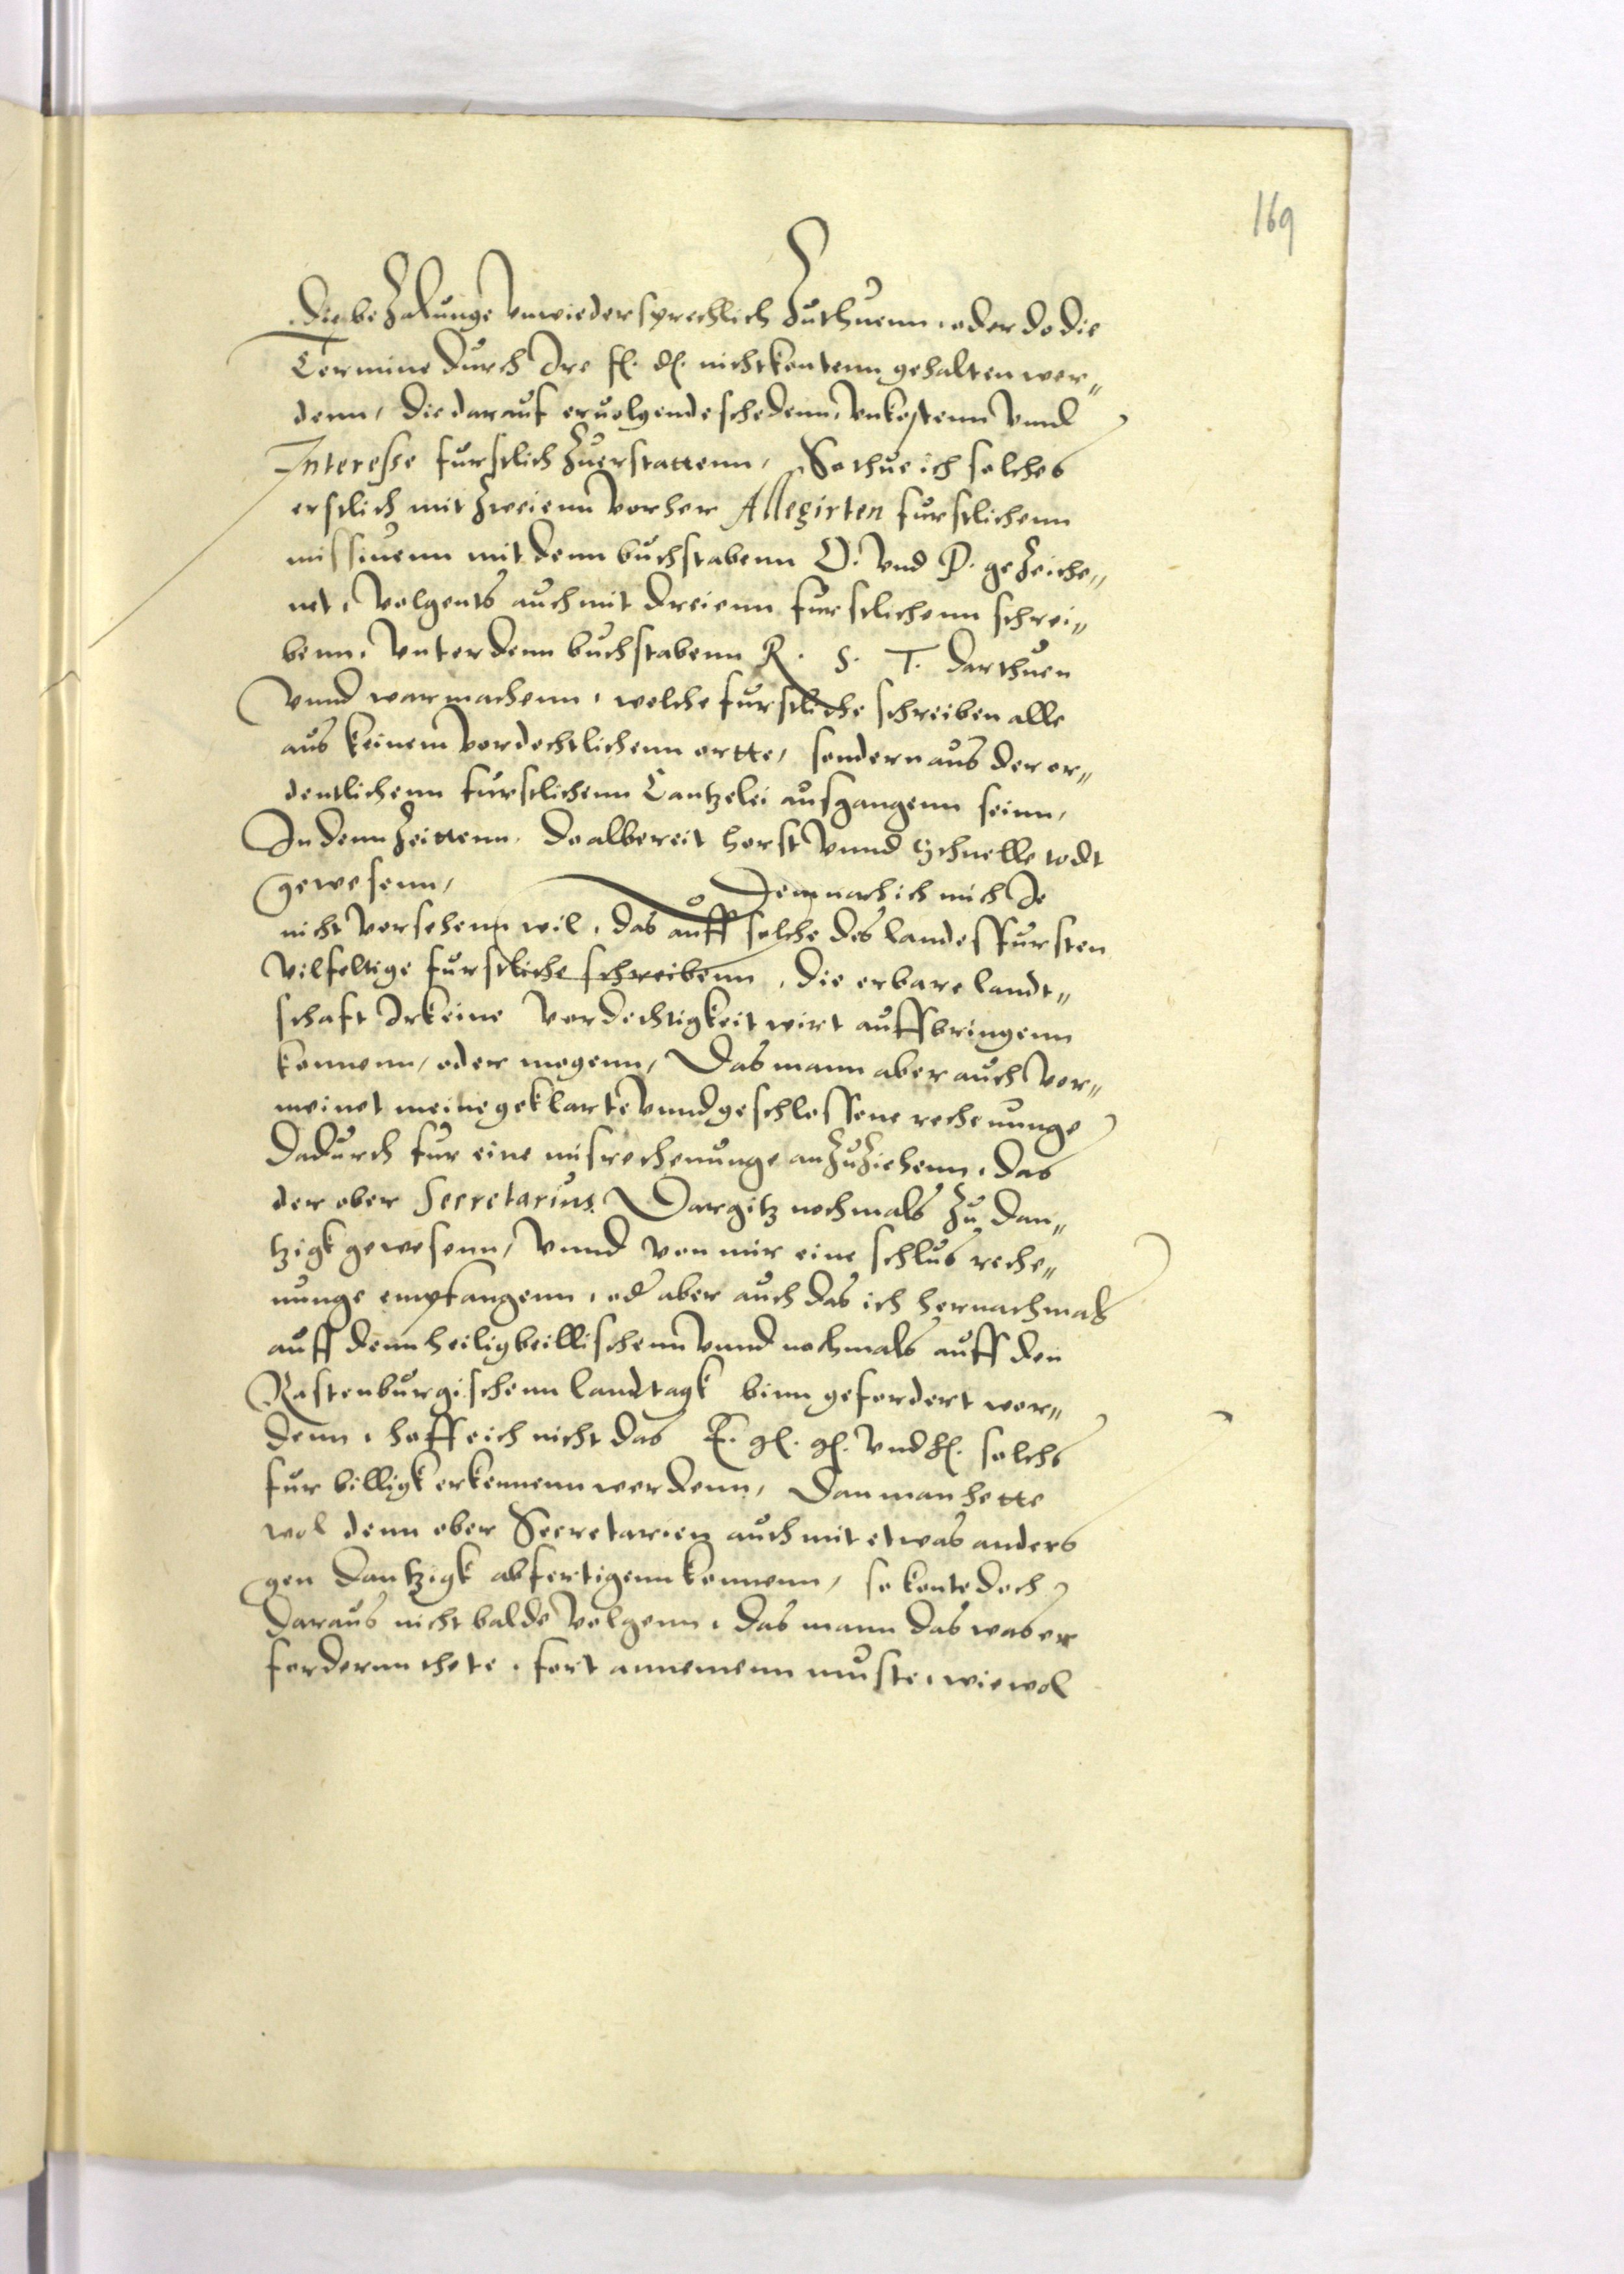 169
Die bezalunge vnwiedersprechlich zuthuenn, oder do die
Termine durch Jre fl. dl. nicht kontenn gehalten wer„
denn, die darauf eruolgende schedenn, vnkostenn vnnd
Interesse furstlich zuerstattenn, So thue ich solches
erstlich mit zweienn vorher Allegirten furstlichenn
missiuenn mit denn buchstabenn O. vnd P. gezeiche„
net, volgents auch mit dreienn furstlichenn schrei„
benn, vnter denn buchstabenn R. S. T. darthuen
vnnd war machenn, welche furstliche schreiben alle
aus keinem verdechtlichenn ortte, sondern aus der or„
dentlichenn furstlichenn Cantzelei ausgangenn seinn,
Jn denn zeittenn, do albereit horst vnnd Schnelle todt
gewesenn, Demnach ich mich Je
nicht versehenn wil, das auff solche des landesfursten
vilfeltige furstliche schreibenn, die erbare landt„
schaft Jrkeine verdechtigkeit wirt auffbringenn
konnenn, oder mogenn, Das mann aber auch ver„
meinet meine geklarte vnnd geschlossene rechenunge
dadurch fur eine misrechenunge anzuziehenn, das
der ober Secretarius Dargitz nochmals zu Dan„
tzigk gewesenn, vnnd von mir eine schlus reche„
nunge empfangenn, od aber auch das ich hernachmals
auff denn heiligbeillischenn vnnd nochmals auff den
Rastenburgischenn landtagk binn gefordert wor„
denn, hoffe ich nicht das E. gl. gl. vnd hl. solchs
fur billigk erkennenn werdenn, Dan man hette
wol denn ober Secretarien auch mit etwas anders
gen Dantzigk abfertigenn konnenn, so konte doch
daraus nicht balde volgenn, das mann das was er
fordernn thete, fort annemenn muste, wiewol